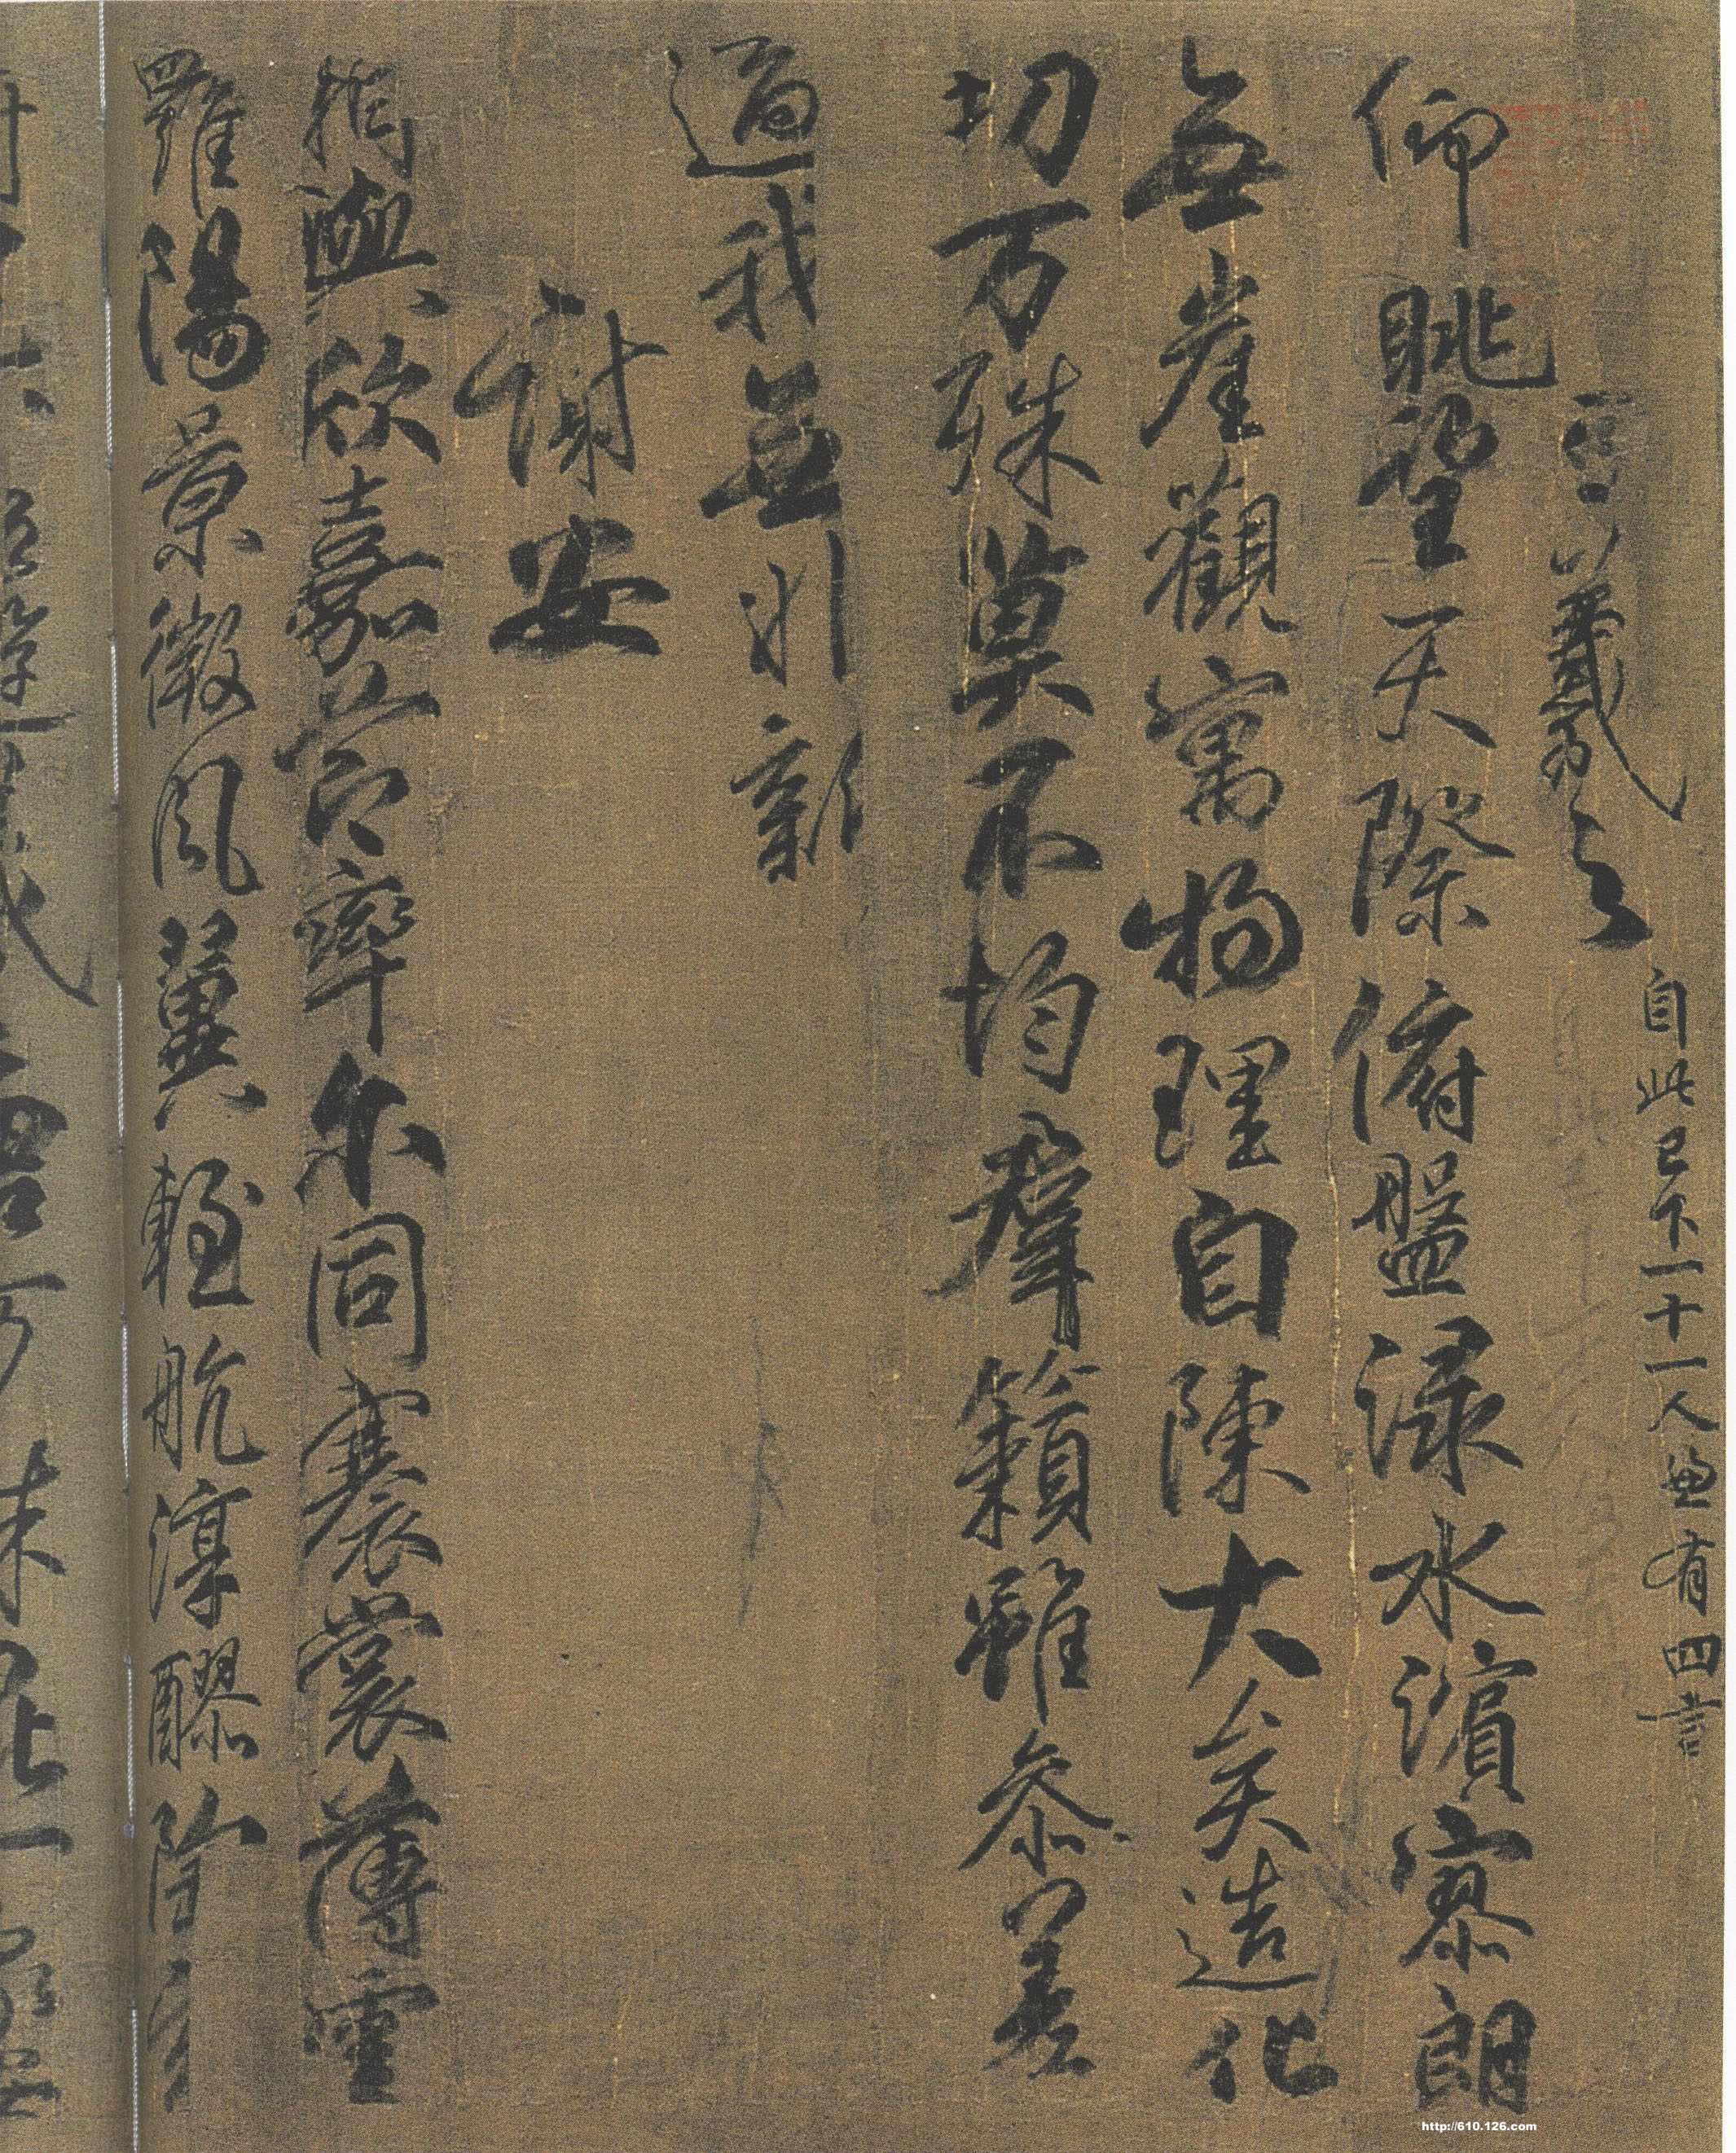 羲之
自此已下一十一人無有四言
仰眺望天際俯盤淥水濱寥朗
無崖觀寓物理自陳大矣造化
功万殊莫不均群籟雖參差
適我無非新
謝安
相與欣嘉節率尔同褰裳薄雲
羅陽景微風翼輕航淳醪陶
http://610.126.com